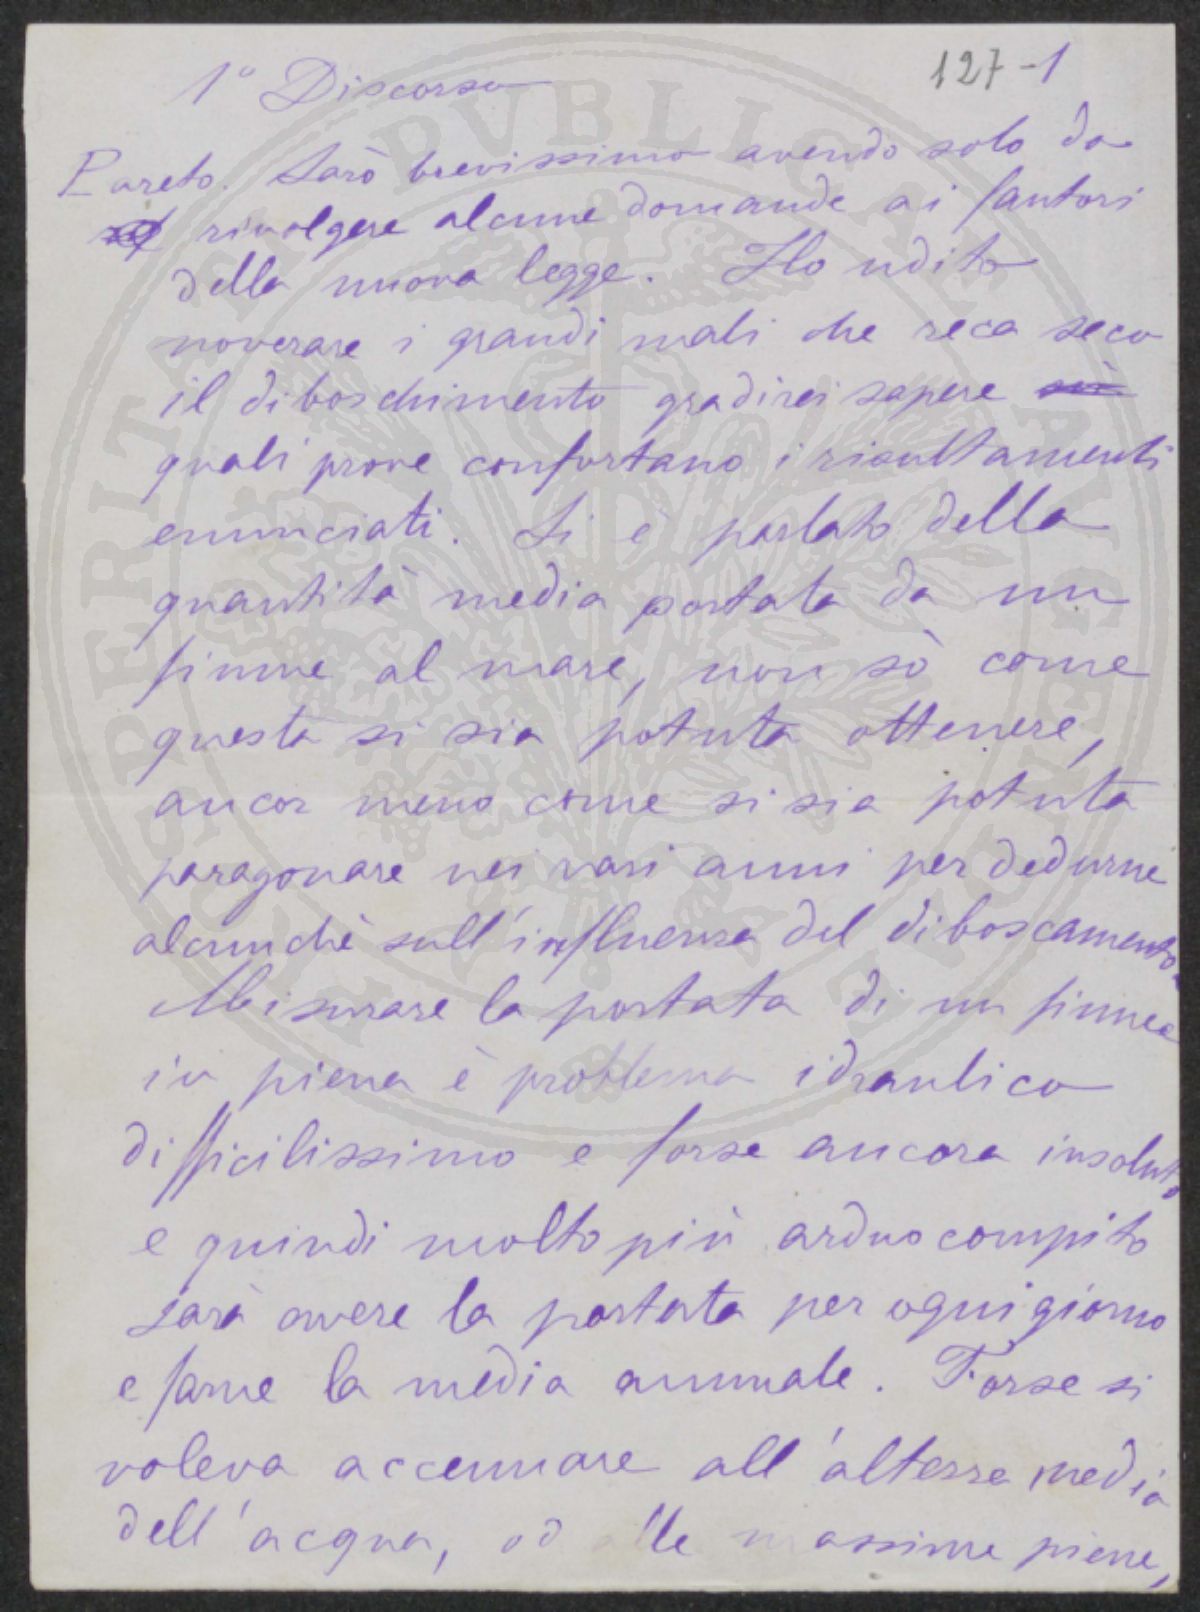 127-1
1° Discorso
Pareto. Sarò brevissimo avendo solo da
rivolgere alcune domande ai fautori
della nuova legge. Ho udito
noverare i grandi mali che reca seco
il diboschimento gradirei sapere
quali prove confortano i risultamenti
enunciati. Si è parlato della
quantità media portata da un
fiume al mare, non sò come
questa si sia potuta ottenere,
ancor meno come si sia potuta
paragonare nei vari anni per dedurne
alcunchè sull'influenza del diboscamento.
Misurare la portata di un fiume
in piena è problema idraulico
difficilissimo e forse ancora insoluto
e quindi molto più arduo compito
sarà avere la portata per ogni giorno
e farne la media annuale. Forse si
voleva accennare all'altezza media
dell'acqua, od alle massime piene,